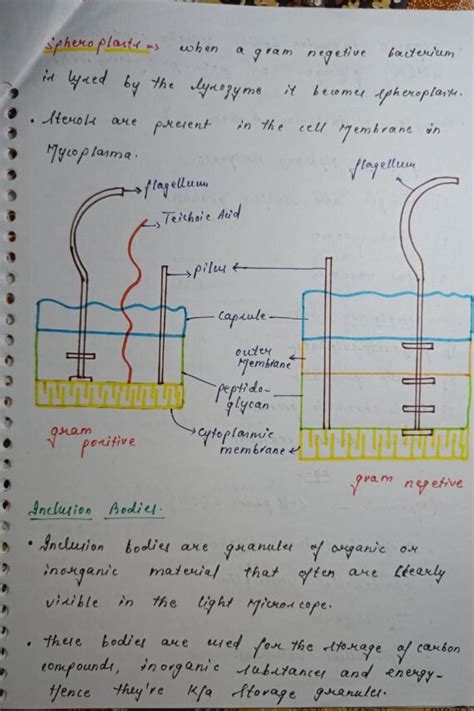 Spheroplasts ⇒ when a gram negetive bacterium
is lysed by the lysozyme it becomes spheroplasts.
• Sterols are present in the cell Membrane in
Mycoplasma.
flagellum
flagellum
Teichoic Acid
pilus
capsule
outer
Membrane
peptido-
glycan
cytoplasmic
membrane
gram
positive
gram negetive
Inclusion Bodies.
• Inclusion bodies are granules of organic or
inorganic material that often are clearly
visible in the light Microscope.
• These bodies are used for the storage of carbon
compounds, inorganic substances and energy-
Hence they're k/a storage granules.